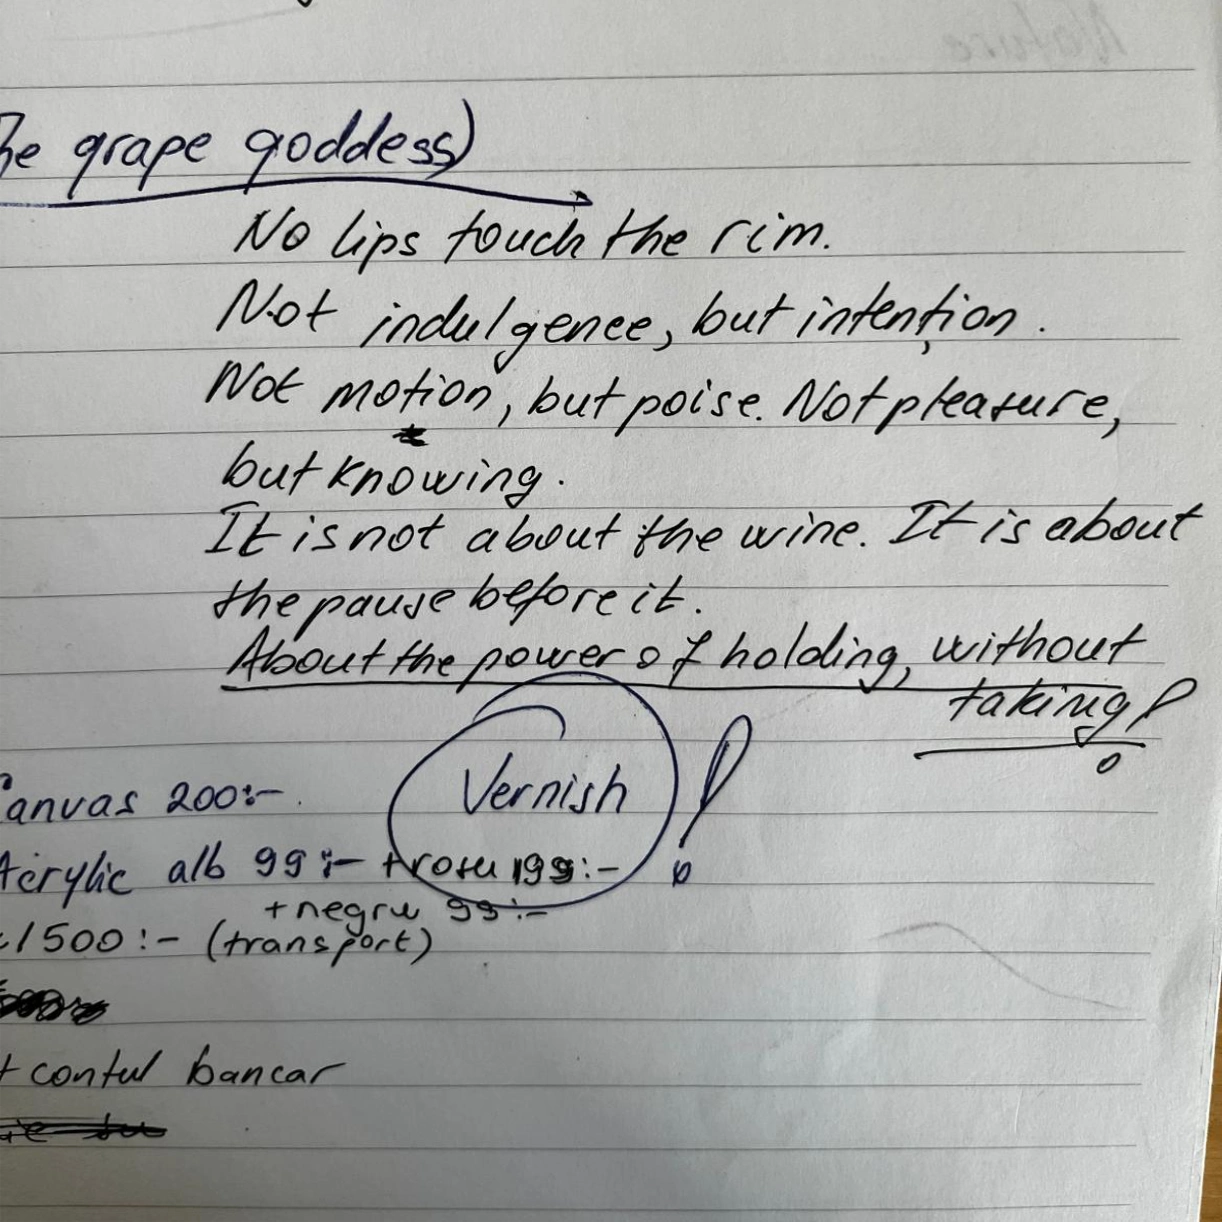 he grape goddess)
No lips touch the rim.
Not indulgence, but intention.
Not motion, but poise. Not pleasure,
but knowing.
It is not about the wine. It is about
the pause before it.
About the power of holding, without
taking!
Vernish !
Canvas 200:-
Acrylic alb 99:- + rosu 199:-
+ negru 99:-
1500:- (transport)
+ contul bancar